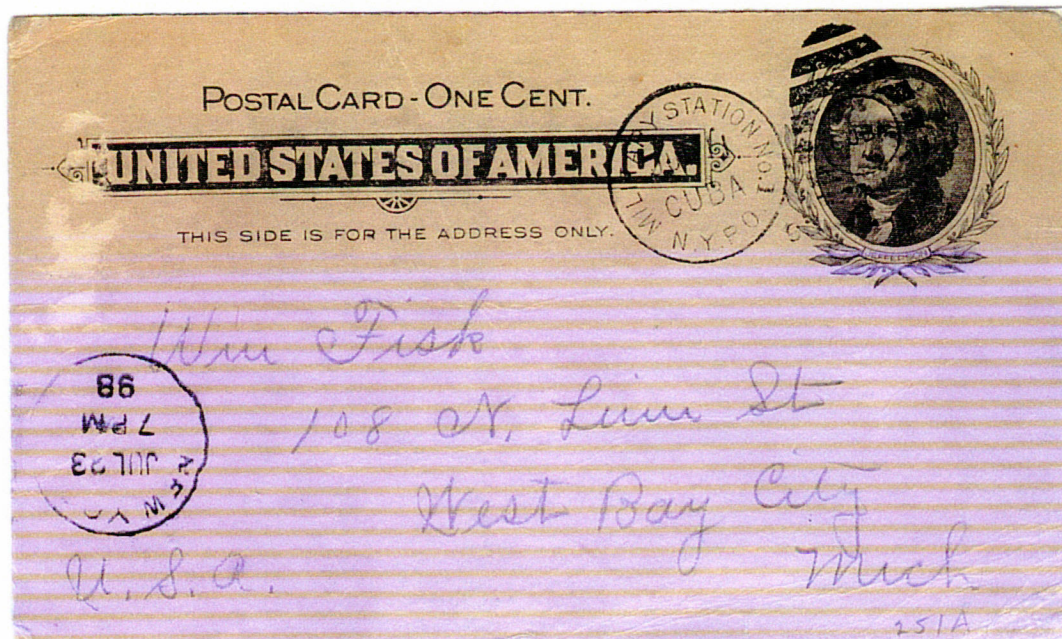 POSTAL CARD - ONE CENT.
UNITED STATES OF AMERICA.
THIS SIDE IS FOR THE ADDRESS ONLY.
MILITARY STATION No. 1
CUBA
N.Y.P.O.
JEFFERSON
Wm Fisk
108 N. Linn St
West Bay City
Mich
U.S.A.
NEW YO
JUL 23
7 PM
98
251A